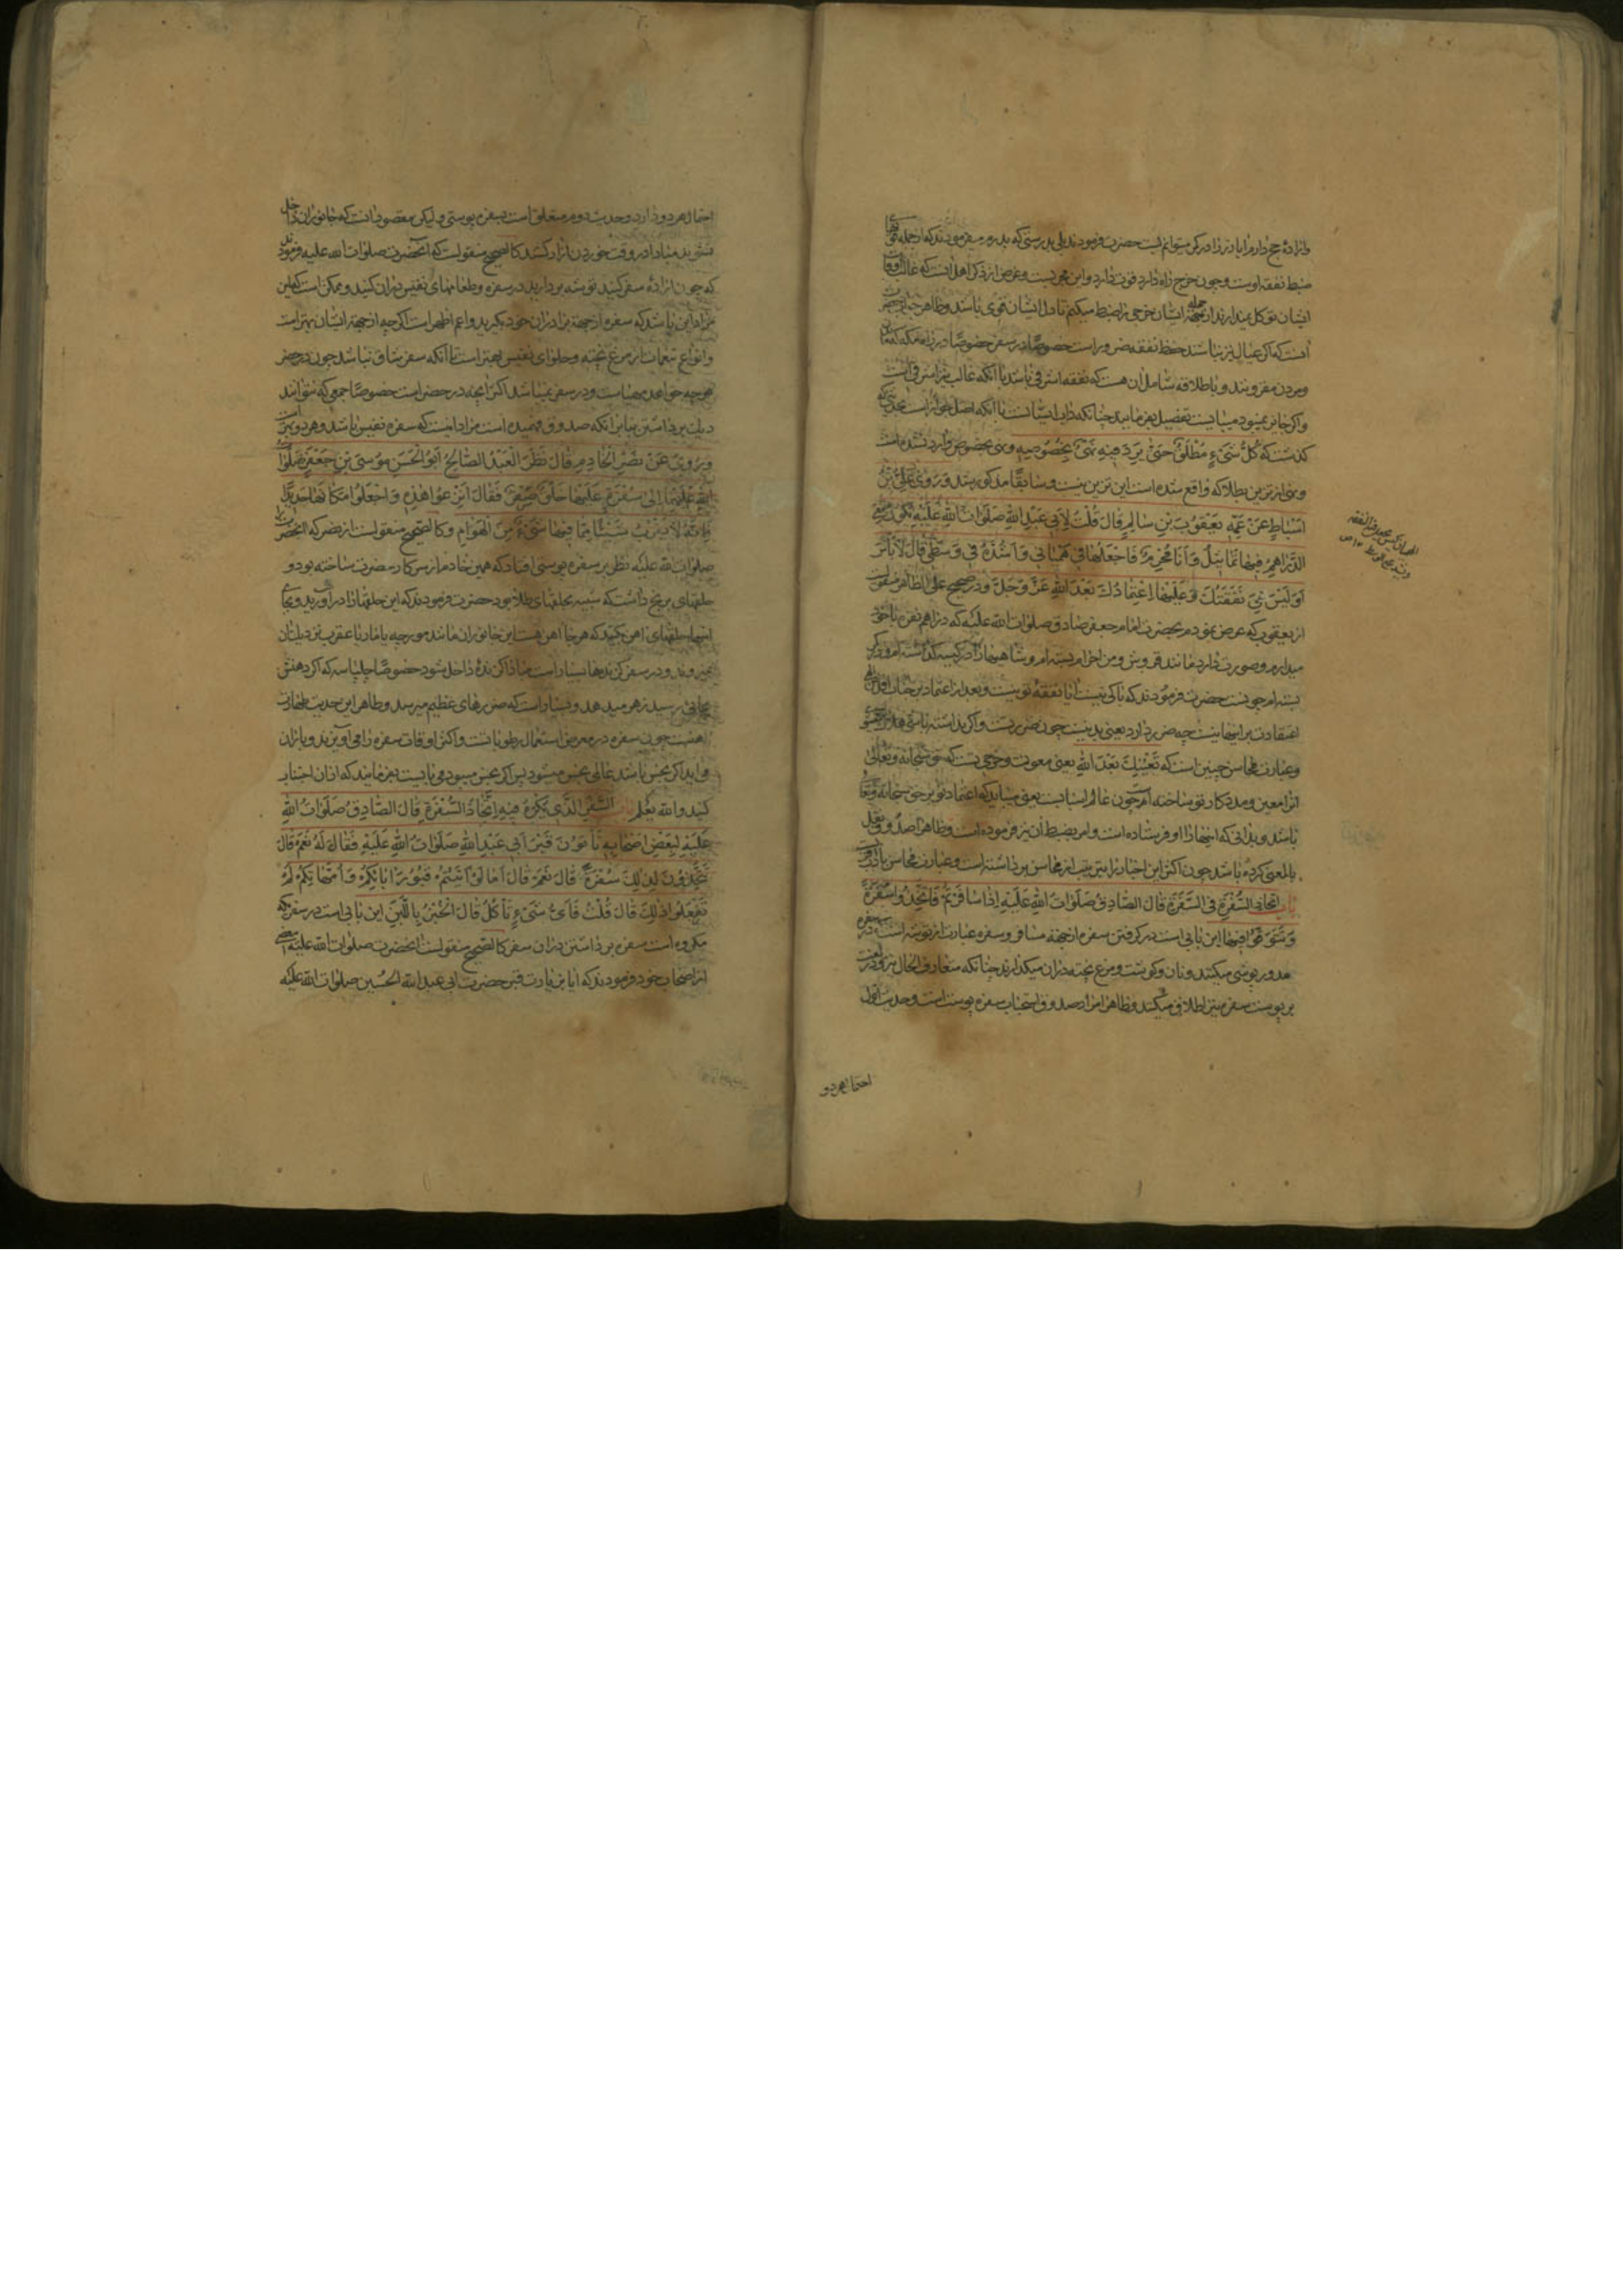 واراده حج دارم ایا در کمر میتوانم بست حضرت فرمودند بلی بدرستی که پدرم میفرمودند که از جمله قوة
ضبط نفقه اوست و چون خرج راه دارد قوت دارد و این مجربست و غرض از ذکر اهل انست که غالب اوقات
ایشان توکل ندارند از جهة ایشان خرجی را ضبط میکنم تا دل ایشان قوی باشد و ظاهر
انست که اگر عیال نیز نباشند حفظ نفقه ضرور است خصوصا در سفر خصوصا در راه مکه که
و مردن مقرونند و باطلاقه شامل ان هست که نفقه اشرفی باشد با آنکه غالب نیز اشرفی است
و اگر جایز نمیبود میبایست تفصیل بفرمایند چنانکه داب ایشانست با آنکه اصل جواز است بحدیثی که
گذشت که كُلُّ شَيْءٍ مُطْلَقٌ حَتّىٰ يَرِدَ فِيهِ نَهْيٌ بخصوصه و نهی بخصوص وارد نشده است
و نهی از تزیین بطلا که واقع شده است این تزیین نیست و سابقا مذکور شد وَرَوىٰ عَلِيُّ بْنُ
اَسْبٰاطٍ عَنْ عَمِّهِ يَعْقُوبَ بْنِ سٰالِمٍ قٰالَ قُلْتُ لِاَبِي عَبْدِ اللهِ صَلَوٰاتُ اللهِ عَلَيْهِ تَكُونُ مَعِي
الدَّرٰاهِمُ فِيهٰا تَمٰاثِيلُ وَاَنَا مُحْرِمٌ فَاَجْعَلُهٰا فِي هِمْيٰانِي وَاَشُدُّهُ فِي وَسَطِي قٰالَ لٰا بَأْسَ
اَوَلَيْسَ هِيَ نَفَقَتُكَ وَعَلَيْهٰا اعْتِمٰادُكَ بَعْدَ اللهِ عَزَّ وَجَلَّ و در صحیح علی الظاهر منقولست
از یعقوب که عرض نمودم بحضرت امام جعفر صادق صلوات الله علیه که دراهم نقره با خود
میدارم و صورت دارد مانند قروش و من احرام بسته ام و شاهیها را در کیسه گذاشته ام و در کمر
بسته ام چونست حضرت فرمودند که باکی نیست ایا نفقه تو نیست و بعد از اعتماد بر جناب اقدس الهی
اعتمادت بر اینها نیست چه ضرر دارد یعنی بد نیست چون ضروریست و اگر نداشته باشی
و عبارت محاسن چنین است که تُعِينُكَ بَعْدَ اللهِ یعنی معونت و خرجی تست که حق سبحانه و تعالی
انرا معین و مددکار تو ساخته اند چون عالم اسبابست یعنی میباید که اعتماد تو بر حق سبحانه و تعالی
باشد و بدانی که اینها را او فرستاده است و امر بضبط آن نیز فرموده است و ظاهرا صدوق نقل
بالمعنی کرده باشد چون اکثر این اخبار را بترتیب از محاسن برداشته است و عبارت محاسن
بٰاب اِتّخٰاذِ السُّفْرَةِ فِي السَّفَرِ قٰالَ الصّٰادِقُ صَلَوٰاتُ اللهِ عَلَيْهِ اِذٰا سٰافَرْتُمْ فَاتَّخِذُوا سُفْرَةً
وَتَنَوَّقُوا فِيهٰا این بابی است در گرفتن سفره از جهة مسافر و سفره عبارت از توشه است که در سفره
مدور پوستی میکنند و نان و گوشت و مرغ پخته در ان میگذارند چنانکه متعارف الحال نیز هست
بر پوست سفره نیز اطلاق میکنند و ظاهرا مراد صدوق استحباب سفره پوست است و حدیث اول
احتمال هر دو
احتمال هر دو دارد و حدیث دوم متعلق است بسفره پوستی و لیکن مقصود انست که جانوران داخل
نشوند مبادا در وقت خوردن ازار کشد کالصحیح منقولست که آنحضرت صلوات الله علیه فرمودند
که چون اراده سفر کنید توشه بردارید در سفره و طعامهای نفیس در ان کنید و ممکن است که این
مراد این باشد که سفره از جهة برادران خود بگیرید و اعم اظهر است اگر چه از جهة ایشان بهتر است
و انواع تنعمات از مرغ پخته و حلوای نفیس بهتر است تا آنکه سفر شاق نباشد چون در حضر
هر چه خواهند مهیاست و در سفر نمیباشد اکثر آنچه در حضر است خصوصا جمعی که نتوانند
دیک برداشتن بنا بر آنکه صدوق فهمیده است مراد اینست که سفره نفیس باشد و هر دو بهتر است
وَرُوِيَ عَنْ نَصْرٍ الْخٰادِمِ قٰالَ نَظَرَ الْعَبْدُ الصّٰالِحُ اَبُو الْحَسَنِ مُوسَى بْنُ جَعْفَرٍ صَلَوٰاتُ
اللهِ عَلَيْهِمٰا اِلىٰ سُفْرَةٍ عَلَيْهٰا حَلَقُ صُفْرٍ فَقٰالَ اَنْزِعُوا هٰذِهِ وَاجْعَلُوا مَكٰانَهٰا حَدِيدًا
فَاِنَّهُ لٰا يَقْرُبُ شَيْئًا مِمّٰا فِيهٰا شَيْءٌ مِنَ الْهَوٰامِّ و کالصحیح منقولست از نصر که آنحضرت
صلوات الله علیه نظر بر سفره پوستی افتاد که همین خادم از سرکار حضرت ساخته بود و
حلقهای برنج داشت که شبیه بحلقهای طلا بود حضرت فرمودند که این حلقها را در آورید و بجای
اینها حلقهای آهن بکنید که هر جا آهن هست این جانوران مانند مورچه یا مار یا عقرب نزدیک ان
نمیروند و در سفر گزندها بسیار است مبادا گزنده داخل شود خصوصا چلپاسه که اگر دهنش
بجایی رسید زهر میدهد و بسیار است که ضررهای عظیم میرسد و ظاهر این حدیث طهارت
آهنست چون سفره در معرض استعمال رطوباتست و اکثر اوقات سفره را می آویزند و باران
می اید اگر نجس باشد غالبا نجس میشود پس اگر نجس میبود می بایست بفرمایند که از ان اجتناب
کنید و الله یعلم بٰاب السَّفَرِ الَّذِي يُكْرَهُ فِيهِ اتِّخٰاذُ السُّفْرَةِ قٰالَ الصّٰادِقُ صَلَوٰاتُ اللهِ
عَلَيْهِ لِبَعْضِ اَصْحٰابِهِ تَأْتُونَ قَبْرَ اَبِي عَبْدِ اللهِ صَلَوٰاتُ اللهِ عَلَيْهِ فَقٰالَ لَهُ نَعَمْ قٰالَ
تَتَّخِذُونَ لِذٰلِكَ سُفْرَةً قٰالَ نَعَمْ قٰالَ اَمٰا لَوْ اَتَيْتُمْ قُبُورَ اٰبٰائِكُمْ وَاُمَّهٰاتِكُمْ لَمْ
تَفْعَلُوا ذٰلِكَ قٰالَ قُلْتُ فَاَيَّ شَيْءٍ نَأْكُلُ قٰالَ الْخُبْزَ بِاللَّبَنِ این بابی است در سفری که
مکروه است سفره برداشتن در ان سفر کالصحیح منقولست انحضرت صلوات الله علیه ببعضی
از اصحاب خود فرمودند که ایا بزیارت قبر حضرت ابی عبد الله الحسین صلوات الله علیه